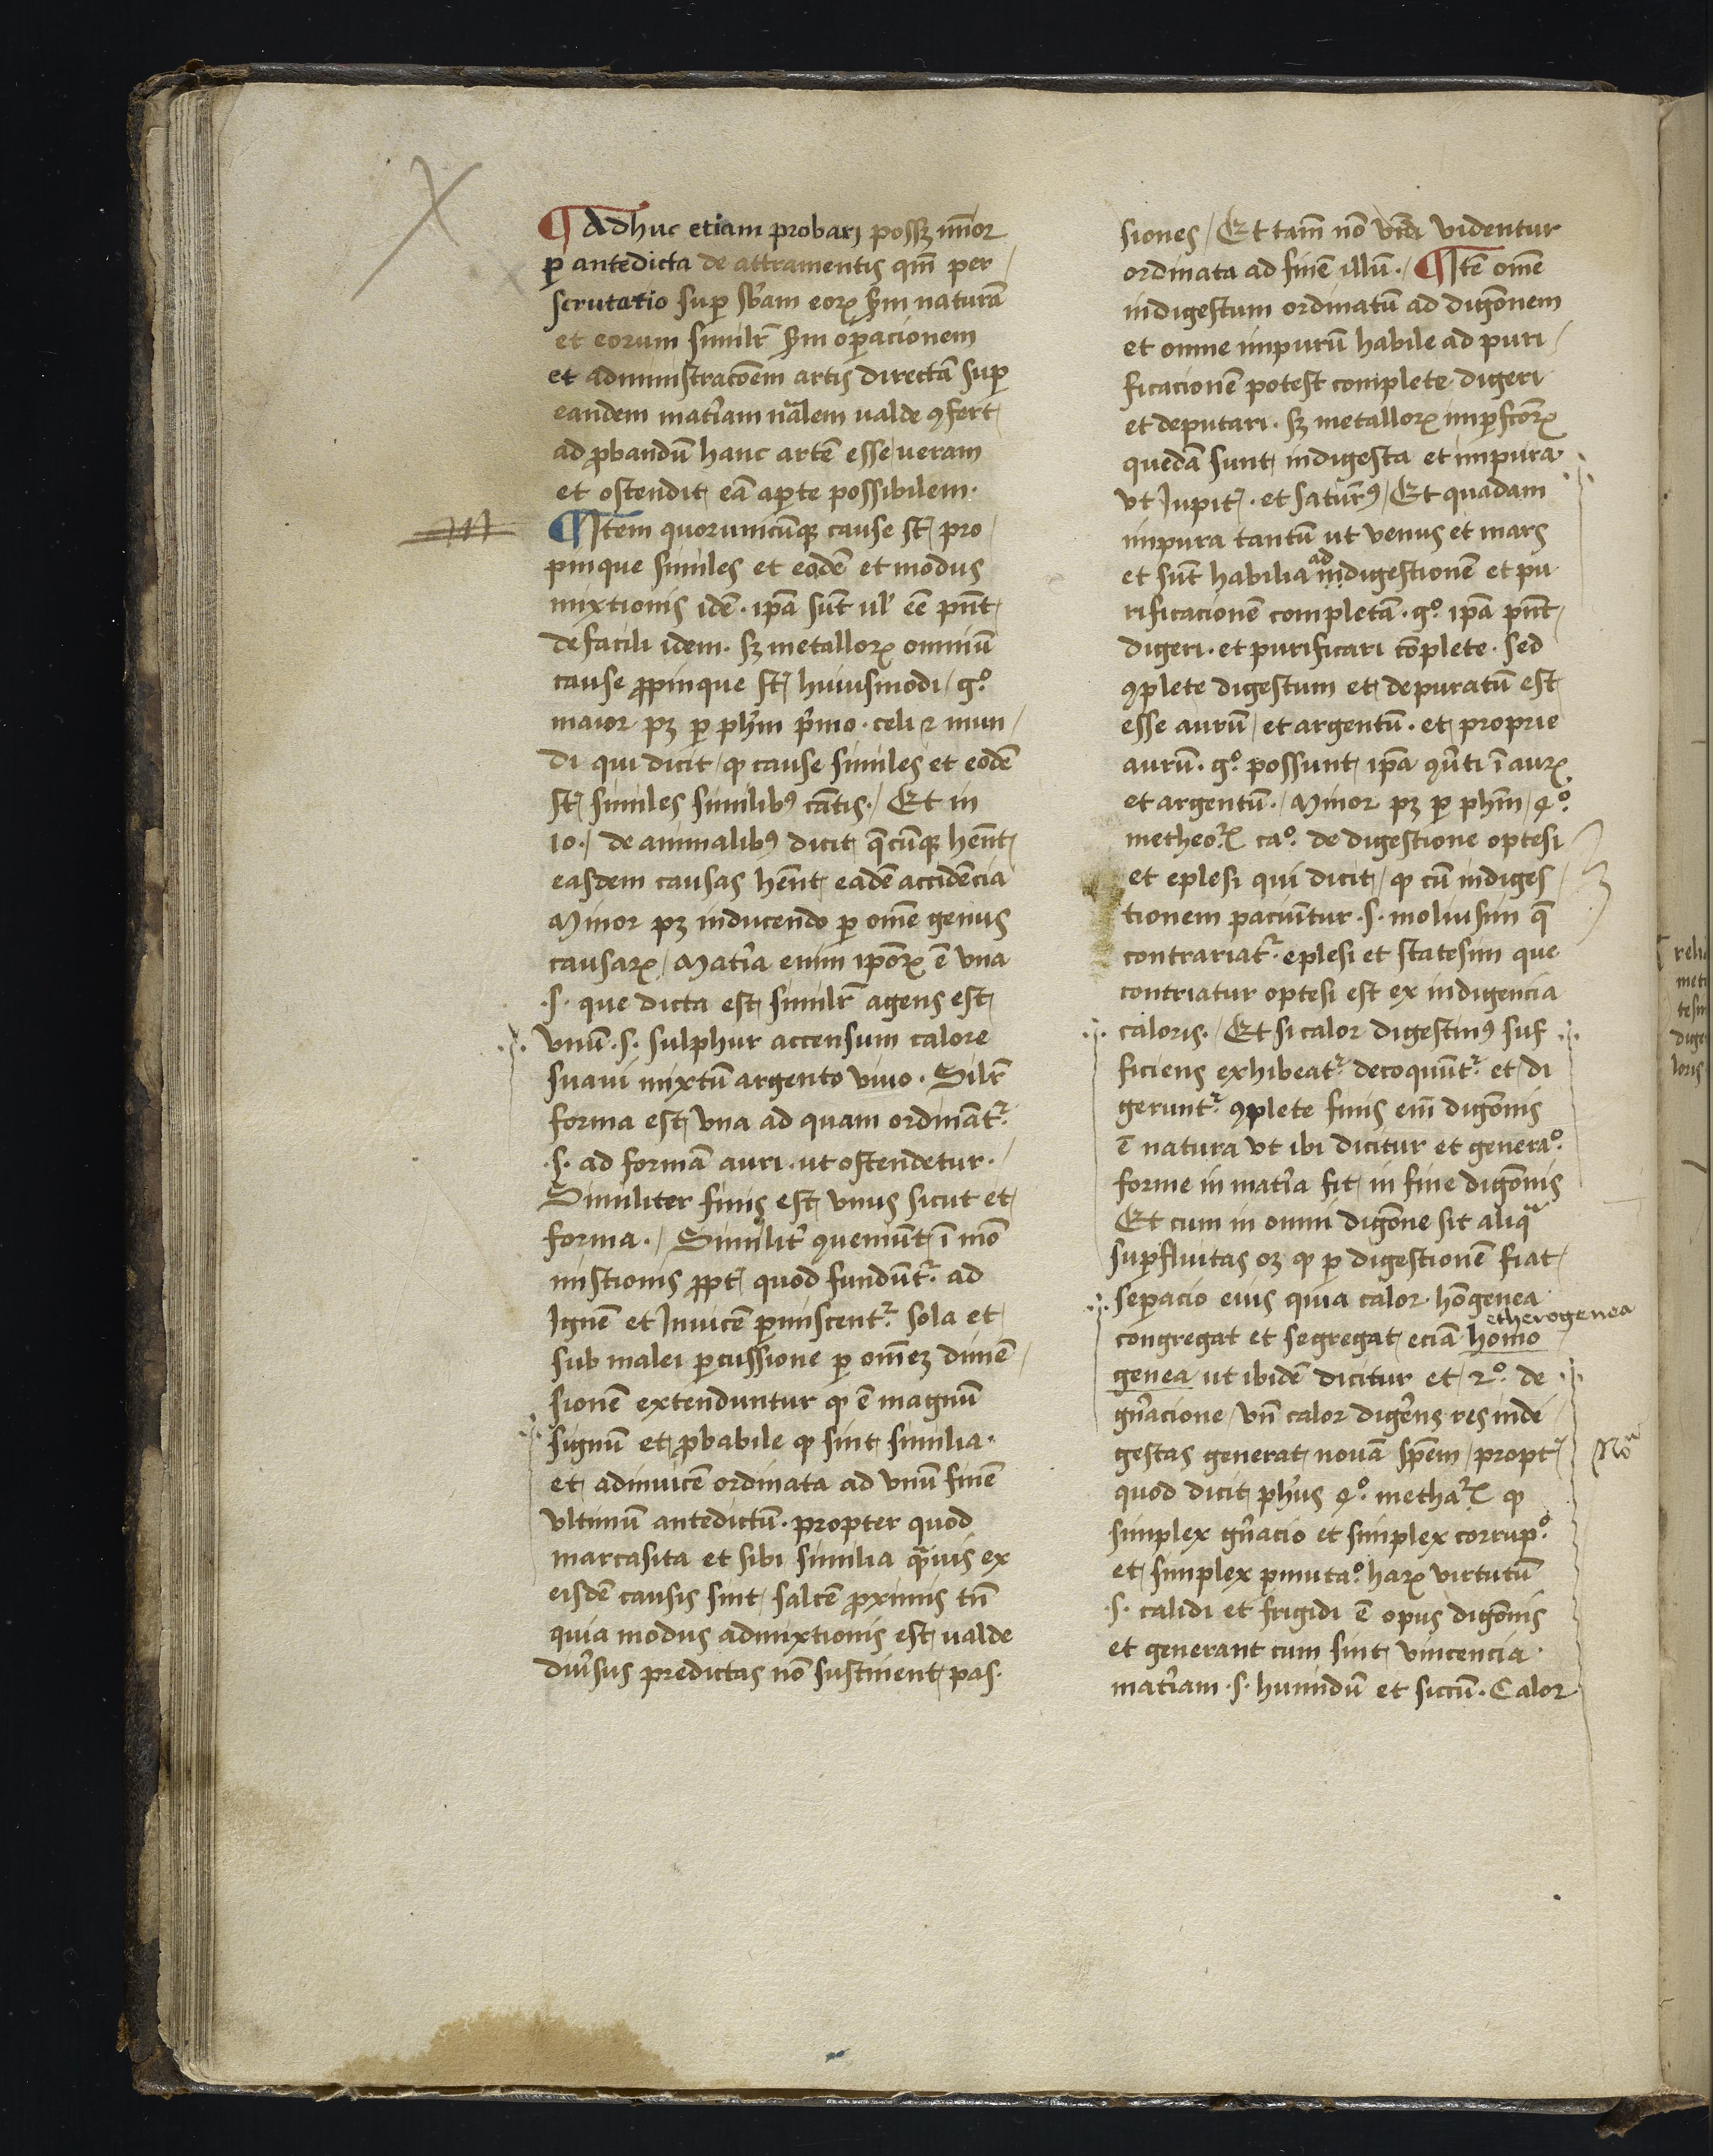 ¶ Adhuc etiam probari possꝫ minor
ꝑ antedicta de attramentis qm̄ per
scrutatio suꝑ sb̄am eorꝝ ẜm naturā
et eorum similr̄ ẜm oꝑacionem
et administratōem artis directā suꝑ
eandem mat̄iam nalem ualde ꝯfert
ad ꝓbandū hanc artē esse ueram
et ostendit eā aꝑte possibilem.
¶ Item quorumcūqꝫ cause st̄ pro
pinque similes et eodē et modus
mixtionis idē. ip̄a sūt ul' ēē pn̄t
de facili idem. sꝫ metallorꝝ omniū
cause ꝓpinque st̄ huiusmodi / gͦ.
maior pꝫ ꝑ ph̄m p̄mo. celi ꝛ mun
di qui dicit ꝙ cause similes et eodē
st̄ similes similibꝰ cātis. / Et in
10. / de animalibꝰ dicit q̄cūqꝫ hēnt
easdem causas hēnt eadē accidēcia
Minor pꝫ inducendo ꝑ om̄e genus
causarꝝ / Mat̄ia enim ip̄orꝝ ē vna
.s. que dicta est similr̄ agens est
vnū .s. sulphur accensum calore
suaui mixtū argento viuo. Silr̄
forma est vna ad quam ordināt᷑.
.s. ad formā auri. ut ostendetur.
Similiter finis est vnus sicut et
forma. / Similit̄ ꝯueniūt ī mō
mistionis ꝓpt̄ quod fundūt᷑. ad
Ignē et Inuicē ꝑmiscent᷑. sola et
sub malei ꝑcussione ꝑ om̄eꝫ dimē
sionē extenduntur ꝙ ē magnū
signū et ꝓbabile ꝙ sint similia.
et adinuicē ordinata ad vnū finē
vltimū antedictū. propter quod
marcasita et sibi similia qͣuis ex
eisdē causis sint saltē ꝓximis tn̄
quia modus admixtionis est ualde
diūsus predictas nō sustinent pas.
siones / Et tam̄ nō videntur
ordinata ad finē illū. / ¶ Itē om̄e
indigestum ordinatū ad digōnem
et omne impurū habile ad puri
ficacionē potest complete digeri
et deputari. sꝫ metallorꝝ imꝑfcōrꝝ
quedā sunt indigesta et impura
vt Iupit̄. et saturꝰ / Et quadam
impura tantū ut venus et mars
et sūt habilia ad indigestionē et pu
rificacionē completā. gͦ. ip̄a pn̄t
digeri. et purificari cōplete. Sed
ꝯplete digestum et depuratū est
esse aurū / et argentū. et proprie
aurū. gͦ. possunt ip̄a ꝯūti ī aurꝝ
et argentū. / Minor pꝫ ꝑ ph̄m / 4ͦ.
metheorꝝ caͦ. de digestione optesi
et eplesi qui dicit / ꝙ cū indiges
tionem paciūtur .s. moliusim q̄
contrariat᷑. eplesi et statesim que
contriatur optesi est ex indigencia
caloris. / Et si calor digestiuꝰ suf
ficiens exhibeat᷑. decoquūt᷑. et di
gerunt᷑. ꝯplete finis eim̄ digōnis
ē natura vt ibi dicitur et generaͦ.
forme in mat̄ia fit in fine digōnis
Et cum in omni digōne sit aliqͣ
suꝑfluitas oꝫ ꝙ ꝑ digestionē fiat
seperacio eius quia calor hōgenea
etherogenea
congregat et segregat eciā homo
genea ut ibidē dicitur et / 2ͦ. de
gn̄acione / vn̄ calor digēns res inde
gestas generat nouā spēm / propt̄
Noͣ
quod dicit ph̄us 4ͦ. metharꝝ ꝙ
simplex gn̄acio et simplex corrupͦ.
et simplex pmutaͦ. harꝝ virtutū
.s. calidi et frigidi ē opus digōnis
et generant cum sint vincencia
mat̄iam .s. humidū et siccū. Calor